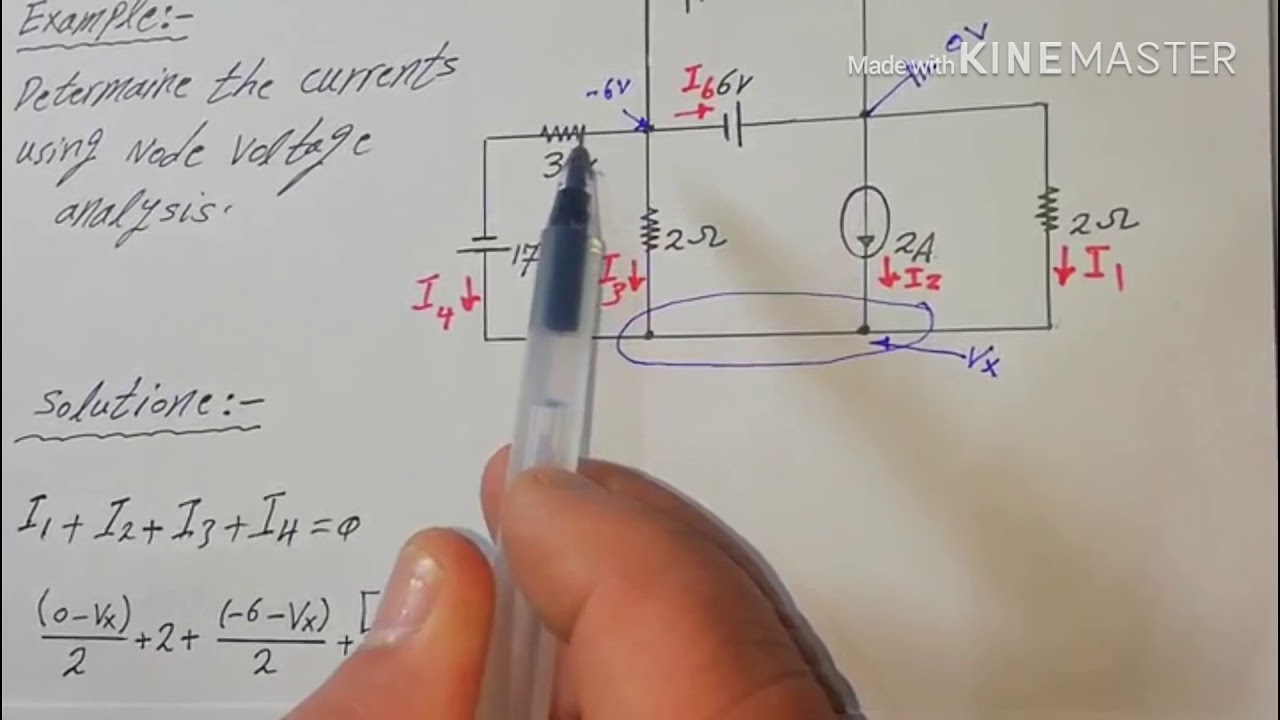 Example:-
Determaine the currents
using Node voltage
analysis.
Made with KINEMASTER
0V
-6V
I6 6V
3
17
2Ω
2A
2Ω
I4
I3
I2
I1
Vx
Solutione:-
I1 + I2 + I3 + I4 = 0
(0-Vx)/2 + 2 + (-6-Vx)/2 + [